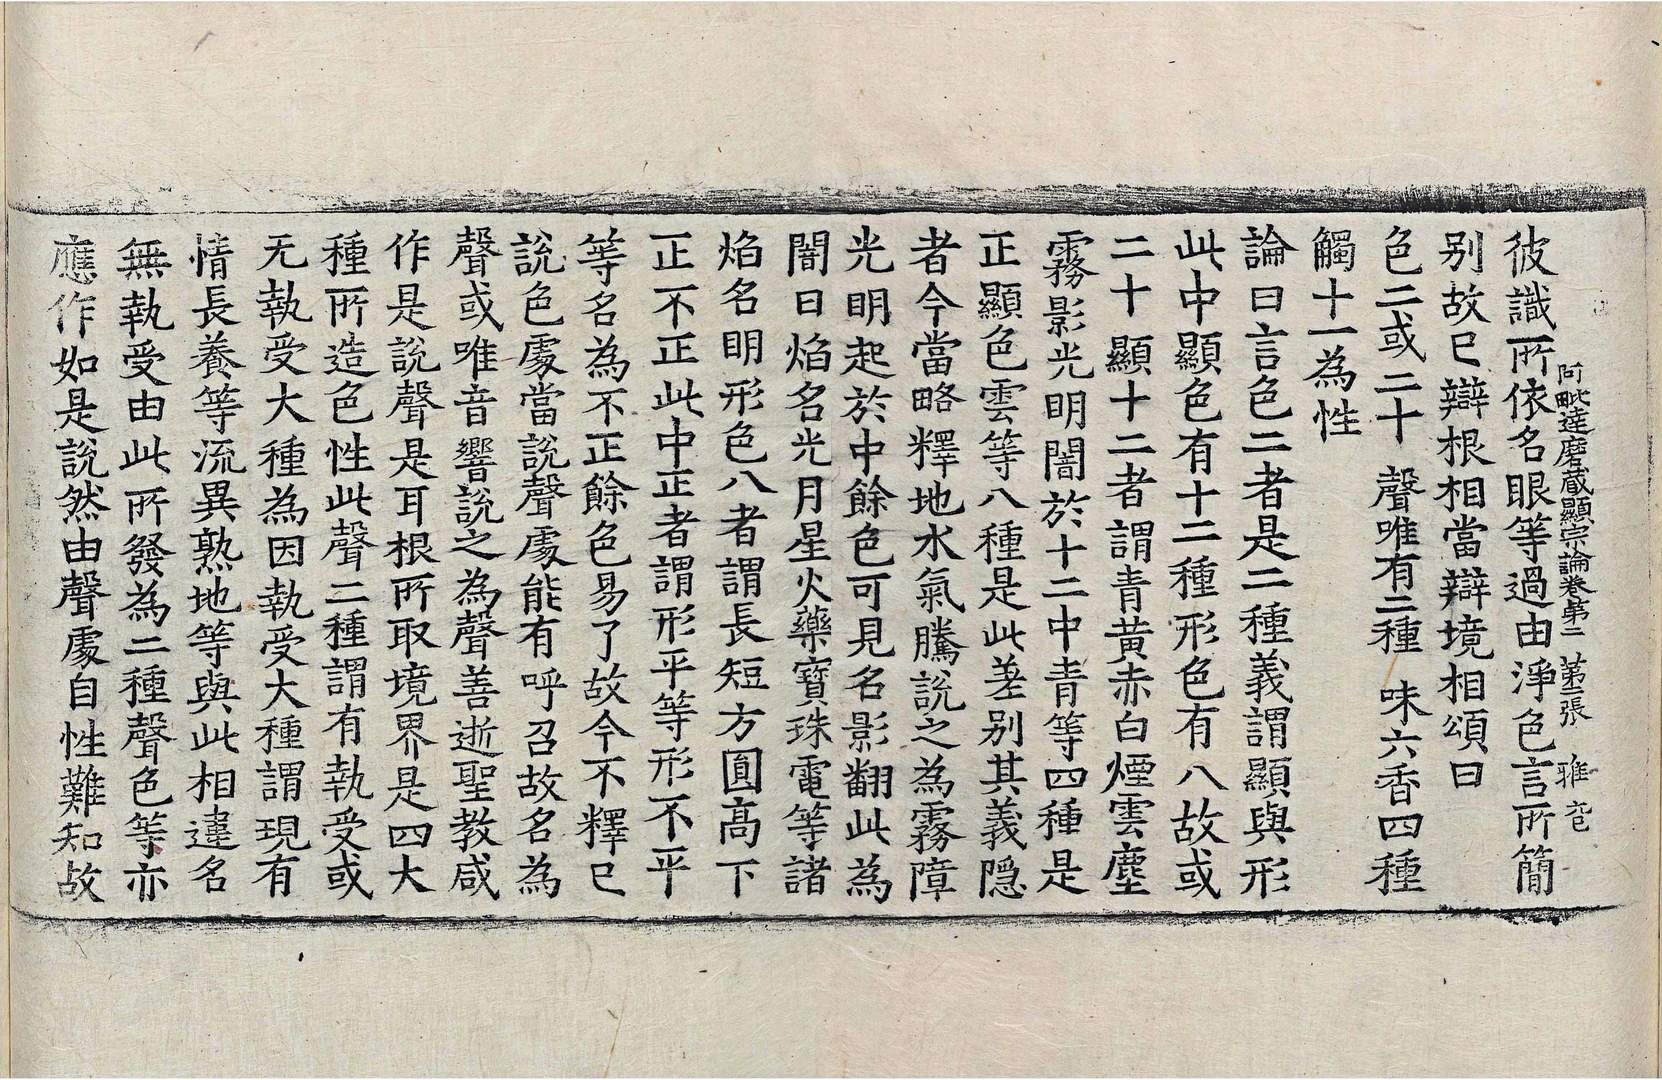 阿毗達磨蔵顯宗論卷第二 第二張 雅
彼識所依名眼等過由淨色言所簡
别故已辯根相當辯境相頌曰
色二或二十 聲唯有二種 味六香四種
觸十一為性
論曰言色二者是二種義謂顯與形
此中顯色有十二種形色有八故或
二十顯十二者謂青黄赤白煙雲塵
霧影光明闇於十二中青等四種是
正顯色雲等八種是此差别其義隠
者今當略釋地水氣騰說之為霧障
光明起於中餘色可見名影翻此為
闇日焰名光月星火藥寶珠電等諸
焰名明形色八者謂長短方圓高下
正不正此中正者謂形平等形不平
等名為不正餘色易了故今不釋已
說色處當說聲處能有呼召故名為
聲或唯音響說之為聲善逝聖教咸
作是說聲是耳根所取境界是四大
種所造色性此聲二種謂有執受或
无執受大種為因執受大種謂現有
情長養等流異熟地等與此相違名
無執受由此所發為二種聲色等亦
應作如是說然由聲處自性難知故